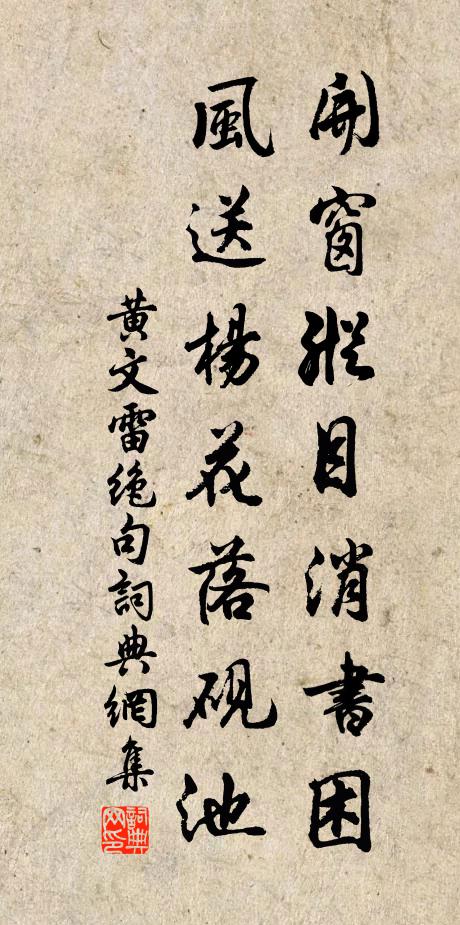 開窗縱目消書困
風送楊花落硯池
黃文雷絕句詞典網集
詞典網印